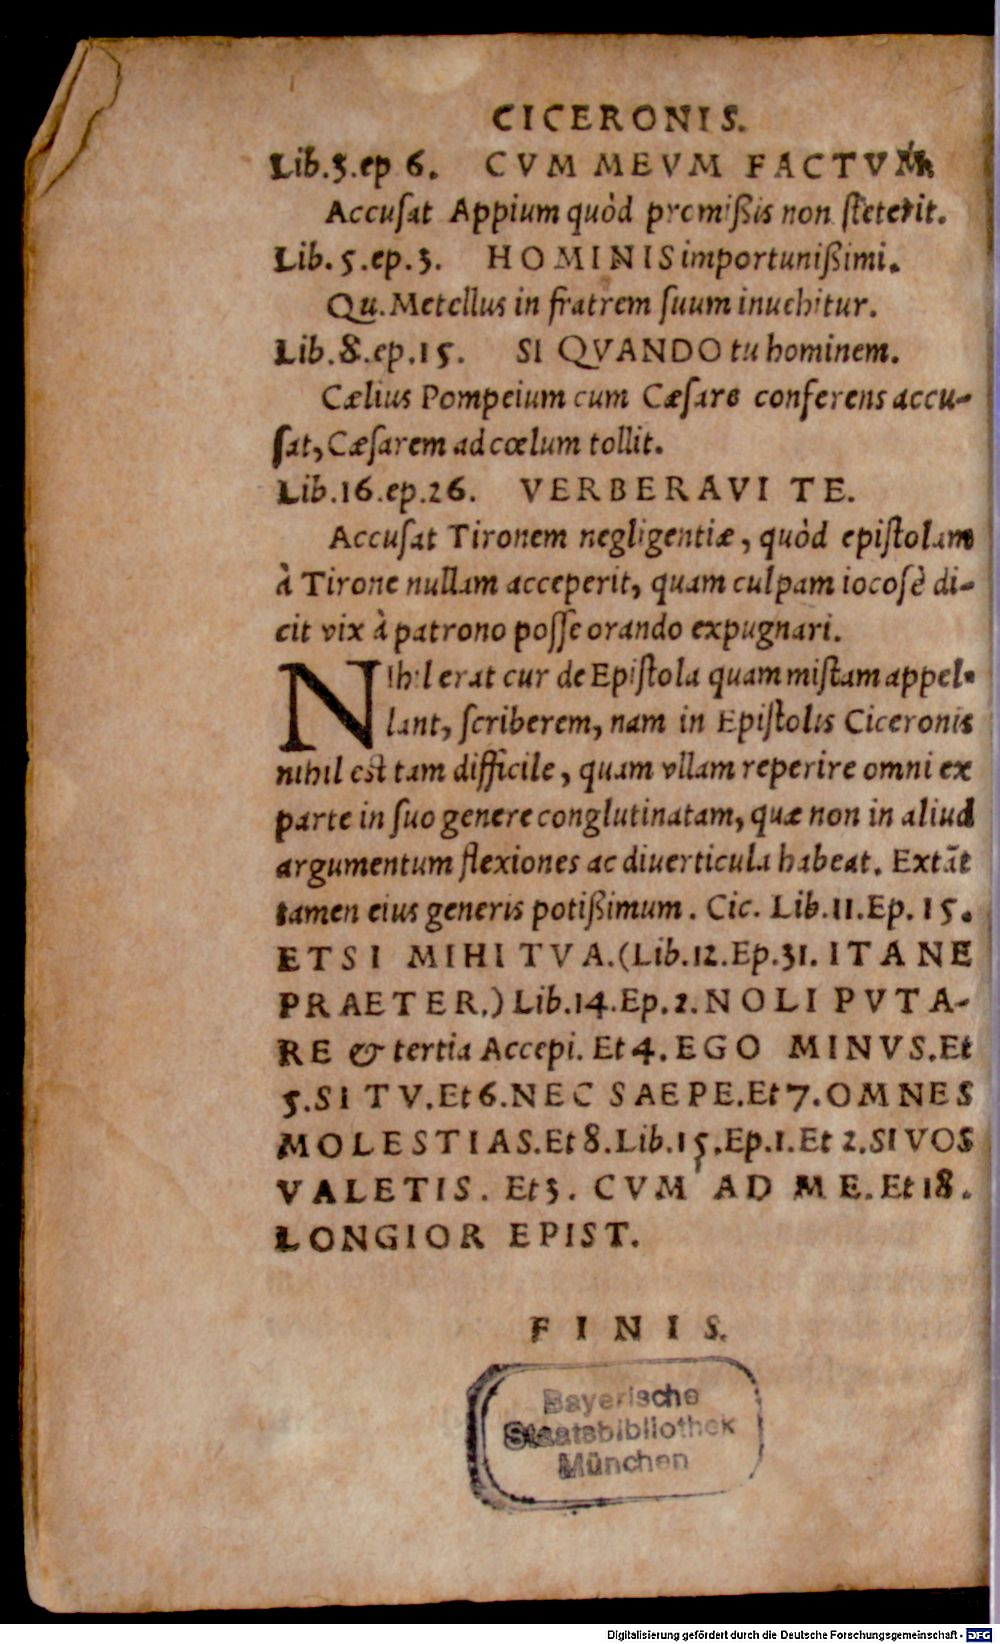 CICERONIS.
Lib.3.ep 6. CVM MEVM FACTVM
Accuſat Appium quòd promißis non ſteterit.
Lib. 5.ep.3. HOMINIS importunißimi.
Qu. Metellus in fratrem ſuum inuehitur.
Lib.8.ep.15. SI QVANDO tu hominem.
Cælius Pompeium cum Cæſare conferens accu-
ſat, Cæſarem ad cœlum tollit.
Lib.16.ep.26. VERBERAVI TE.
Accuſat Tironem negligentiæ, quòd epiſtolam
à Tirone nullam acceperit, quam culpam iocoſè di-
cit vix à patrono poſſe orando expugnari.
NIhil erat cur de Epiſtola quam miſtam appel-
lant, ſcriberem, nam in Epiſtolis Ciceronis
nihil est tam difficile, quam vllam reperire omni ex
parte in ſuo genere conglutinatam, quæ non in aliud
argumentum flexiones ac diuerticula habeat. Extãt
tamen eius generis potißimum. Cic. Lib.11.Ep. 15.
ETSI MIHI TVA.(Lib.12.Ep.31. ITANE
PRAETER.) Lib.14.Ep.2. NOLI PVTA-
RE & tertia Accepi. Et 4. EGO MINVS. Et
5. SI TV. Et 6. NEC SAEPE. Et 7. OMNES
MOLESTIAS. Et 8. Lib.15. Ep.1. Et 2. SI VOS
VALETIS. Et 3. CVM AD ME. Et 18.
LONGIOR EPIST.
FINIS.
Bayerische
Staatsbibliothek
München
Digitalisierung gefördert durch die Deutsche Forschungsgemeinschaft - DFG